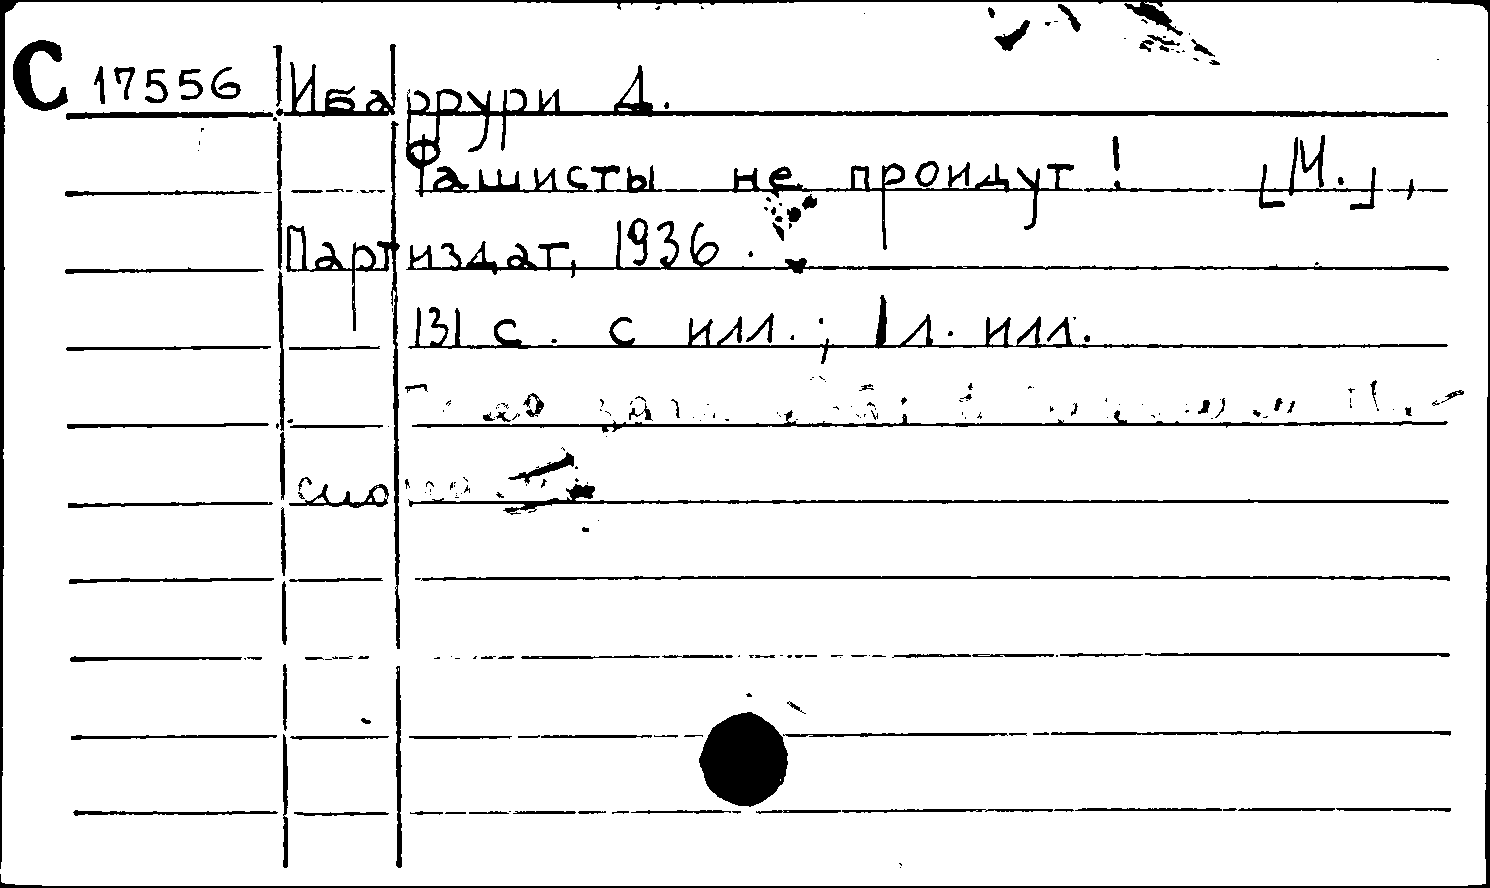 С 17556 Ибаррури Д.
Фашисты не пройдут! [М.],
Партиздат, 1936.
131 с. с илл.; 1 л. илл.